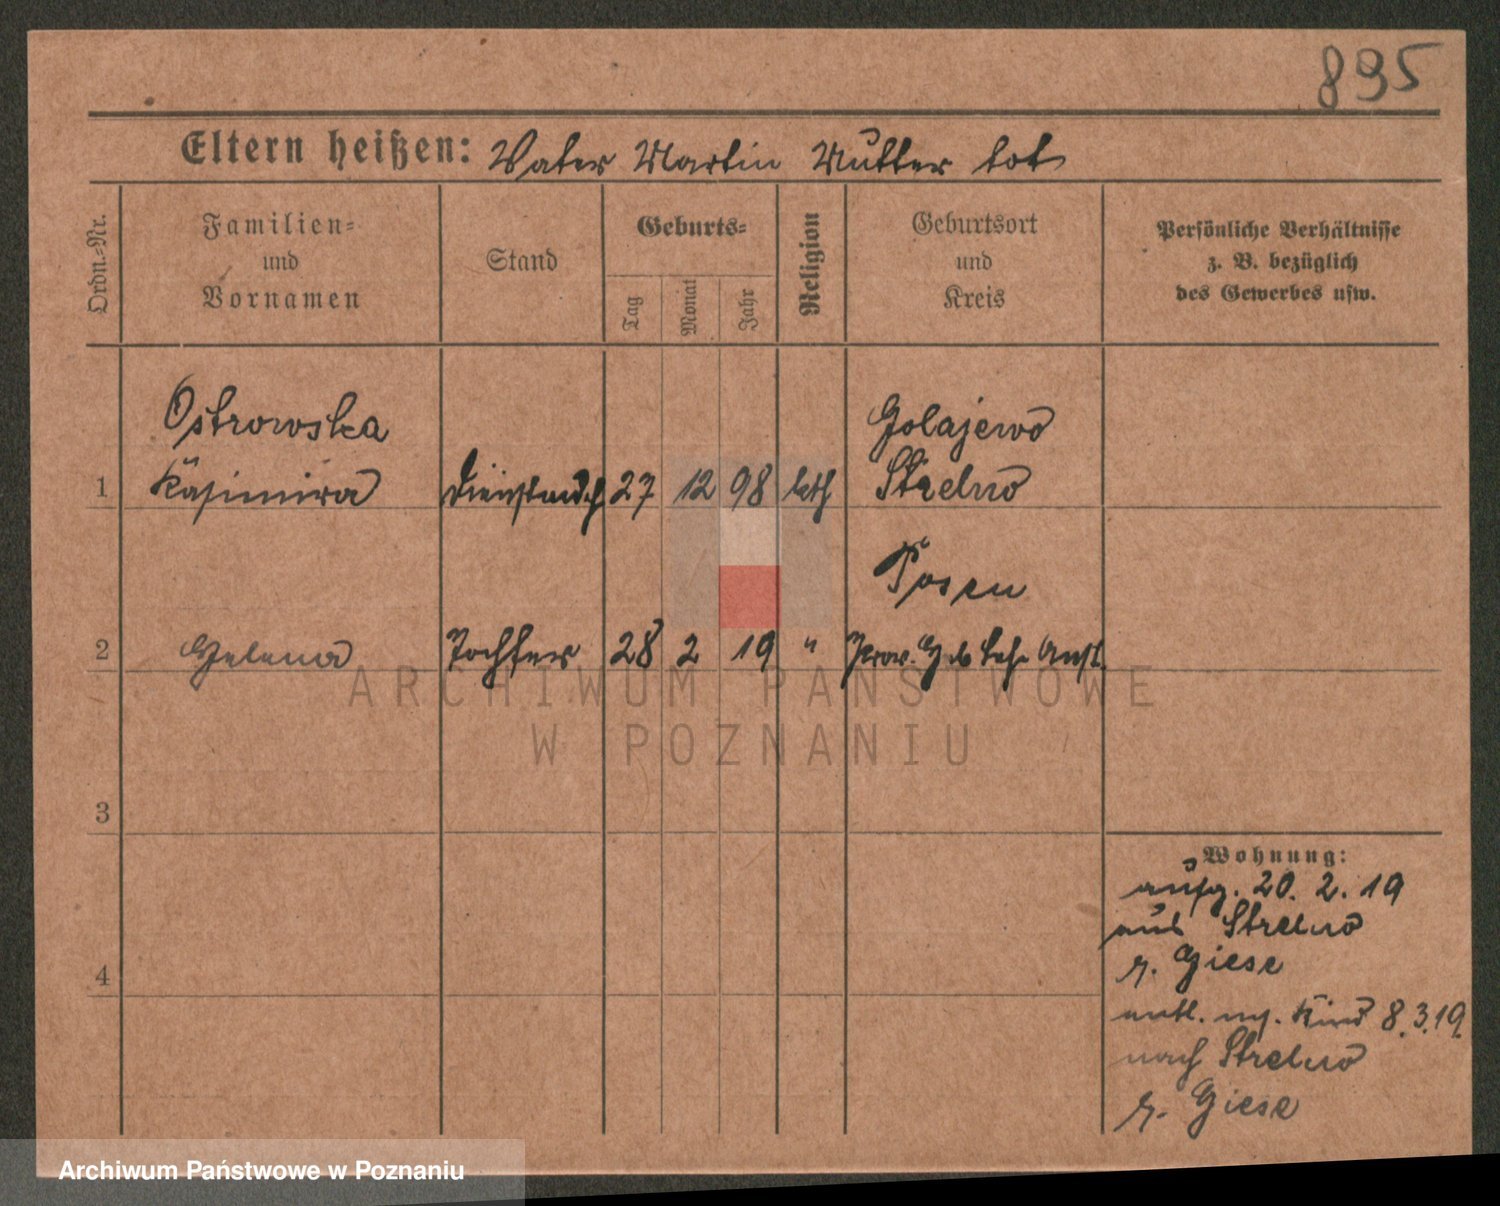 895
Eltern heißen: Vater Martin Mutter tot
Ordn.-Nr.
Familien-
und
Vornamen
Stand
Geburts-
Tag
Monat
Jahr
Religion
Geburtsort
und
Kreis
Persönliche Verhältnisse
z. B. bezüglich
des Gewerbes usw.
Ostrowska
Golajewo
1 Kasimira Dienstmdch 27 12 98 kath Strelno
Posen
2 Helena Tochter 28 2 19 " Prov. Heb Lehr Anst.
3
4
Wohnung:
aufg. 20. 2. 19
aus Strelno
z. Giese
entl. m. Kind 8.3.19
nach Strelno
z. Giese
ARCHIWUM PAŃSTWOWE
W POZNANIU
Archiwum Państwowe w Poznaniu